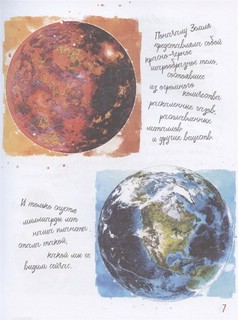 Поначалу Земля
представляла собой
красно-чёрное
шарообразное тело,
состоявшее
из огромного
количества
раскалённых газов,
расплавленных
металлов
и других веществ.
И только спустя
миллиарды лет
наша планета
стала такой,
какой мы её
видим сейчас.
7